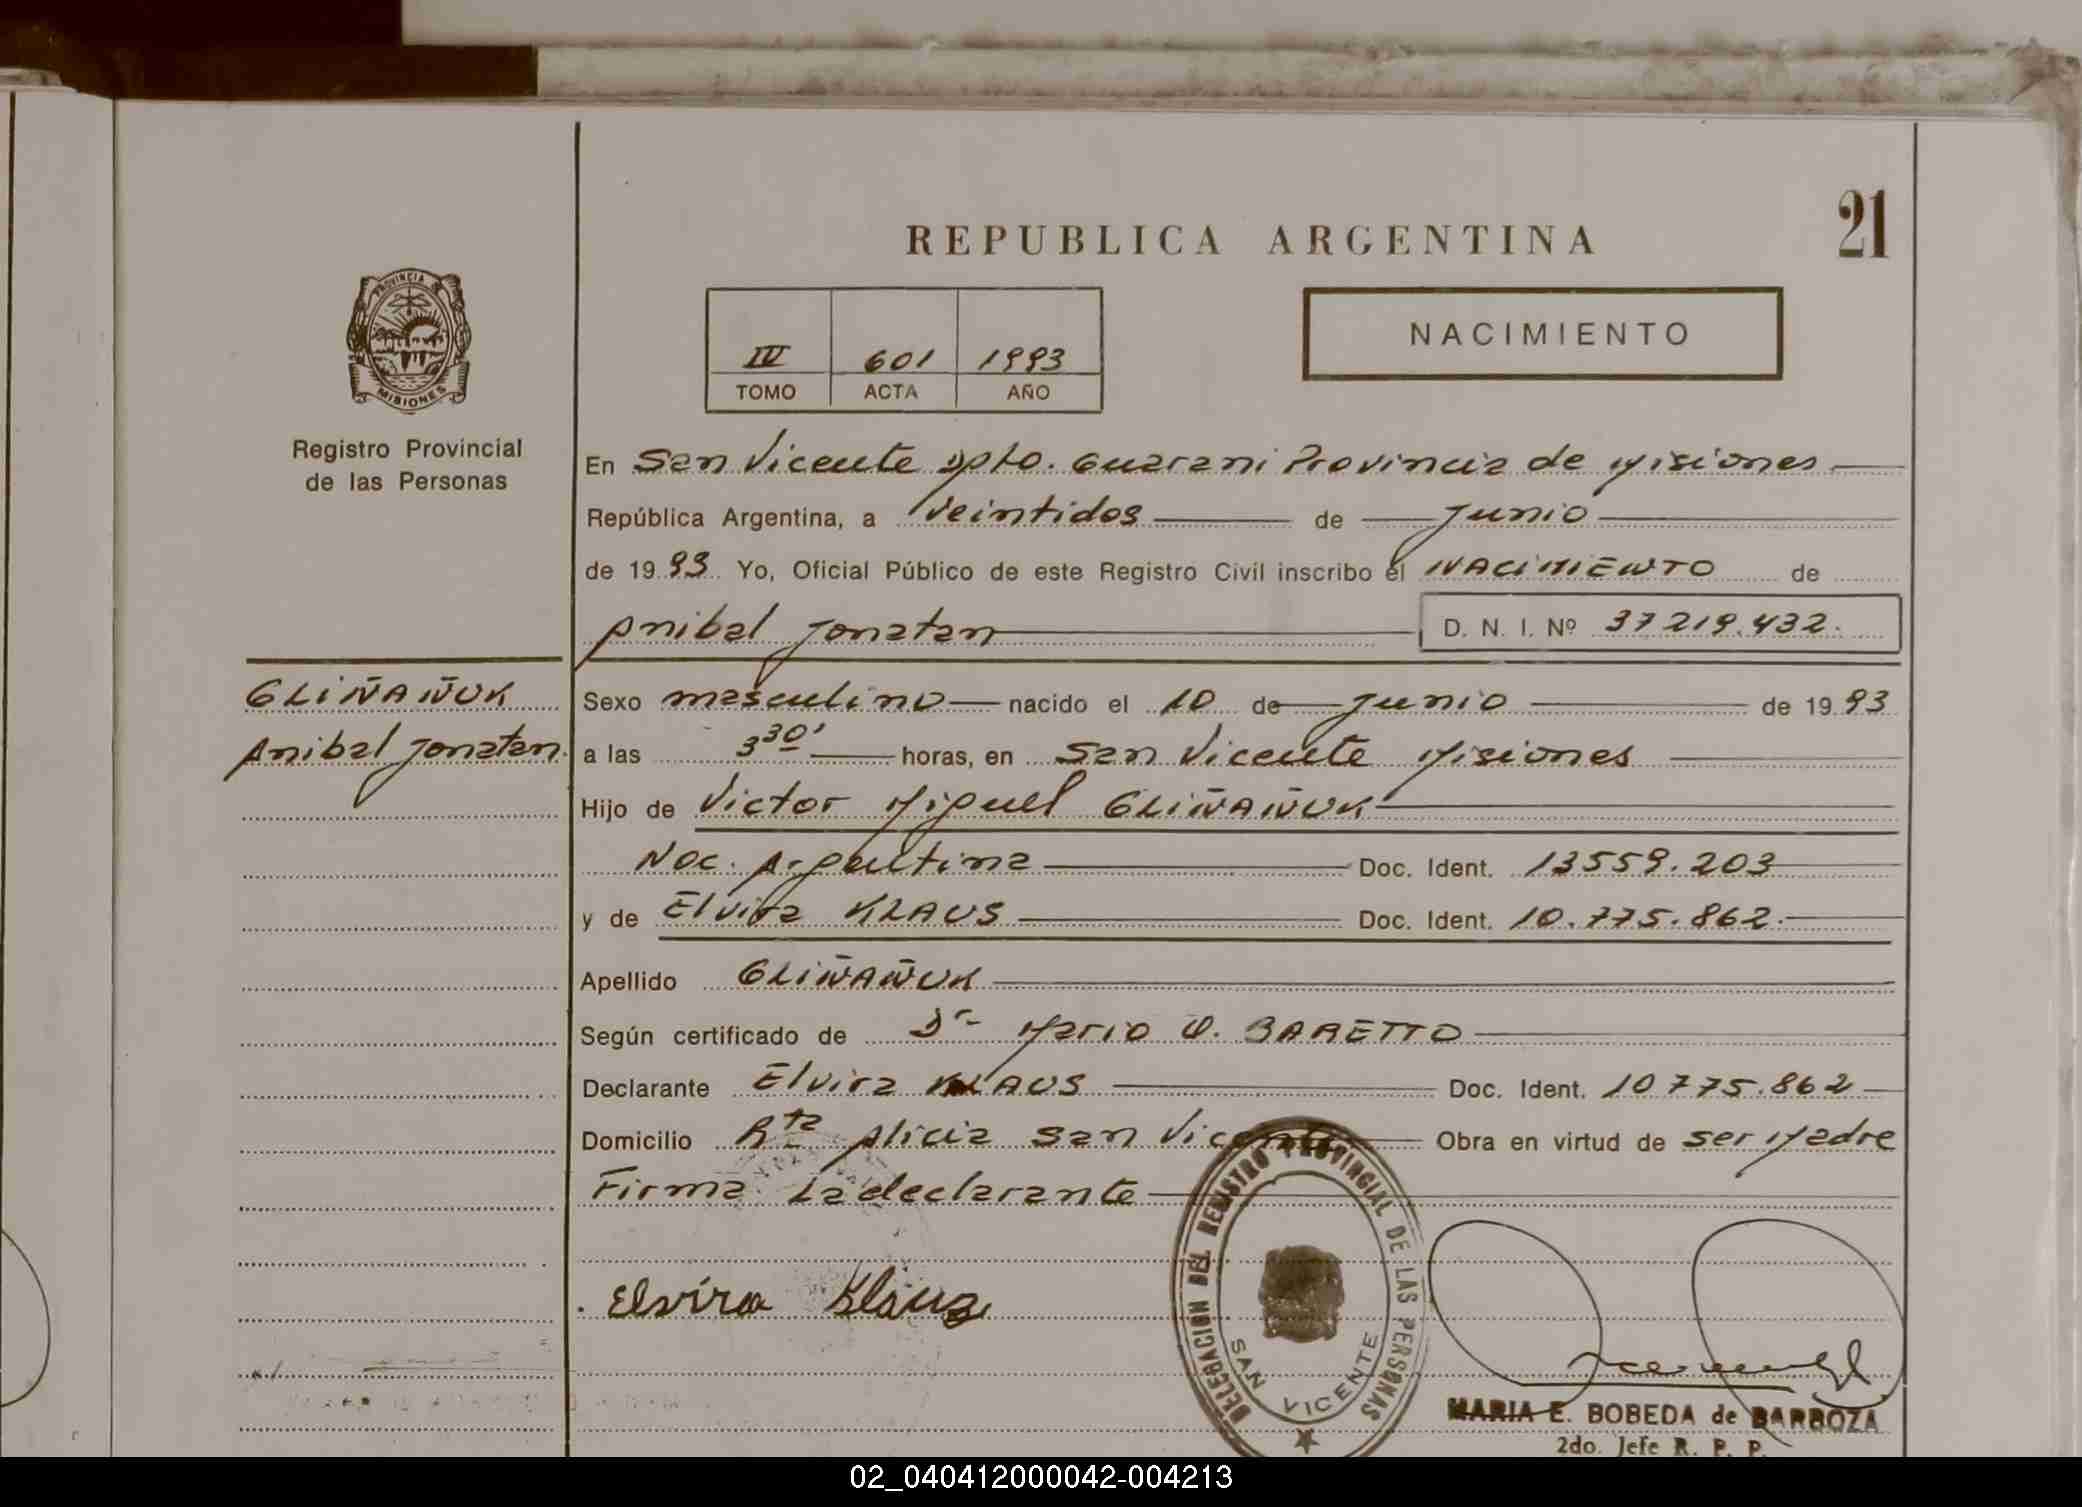 21
REPUBLICA ARGENTINA
PROVINCIA DE
MISIONES
NACIMIENTO
IV 601 1993
TOMO ACTA AÑO
Registro Provincial
de las Personas
En San Vicente Dpto. Guarani Provincia de Misiones
República Argentina, a Veintidos de Junio
de 1993 Yo, Oficial Público de este Registro Civil inscribo el NACIMIENTO de
Anibal Jonatan D. N. I. Nº 37219.432.
GLIÑAÑUK
Anibal Jonatan
Sexo masculino nacido el 10 de Junio de 1993
a las 3 30' horas, en San Vicente Misiones
Hijo de Victor Miguel GLIÑAÑUK
Nac. Argentina Doc. Ident. 13559.203
y de Elvira KLAUS Doc. Ident. 10.775.862.
Apellido GLIÑAÑUK
Según certificado de Dr Mario O. BARETTO
Declarante Elvira KLAUS Doc. Ident. 10775.862
Domicilio Rta Alicia San Vicente Obra en virtud de ser Madre
Firma La declarante
Elvira Klauz
DELEGACION DEL REGISTRO PROVINCIAL DE LAS PERSONAS
SAN VICENTE
MARIA E. BOBEDA de BARBOZA
2do. Jefe R. P. P.
02_040412000042-004213